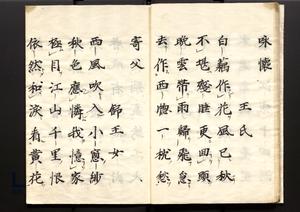 咏懷
王氏
白藕作花風已秋
不堪殘睡更回頭
晚雲帶雨歸飛急
去作西牕一枕愁
寄父
錦王女
西風吹入小窓紗
秋色應憐我憶家
極目江山千里恨
依然和淚看黃花